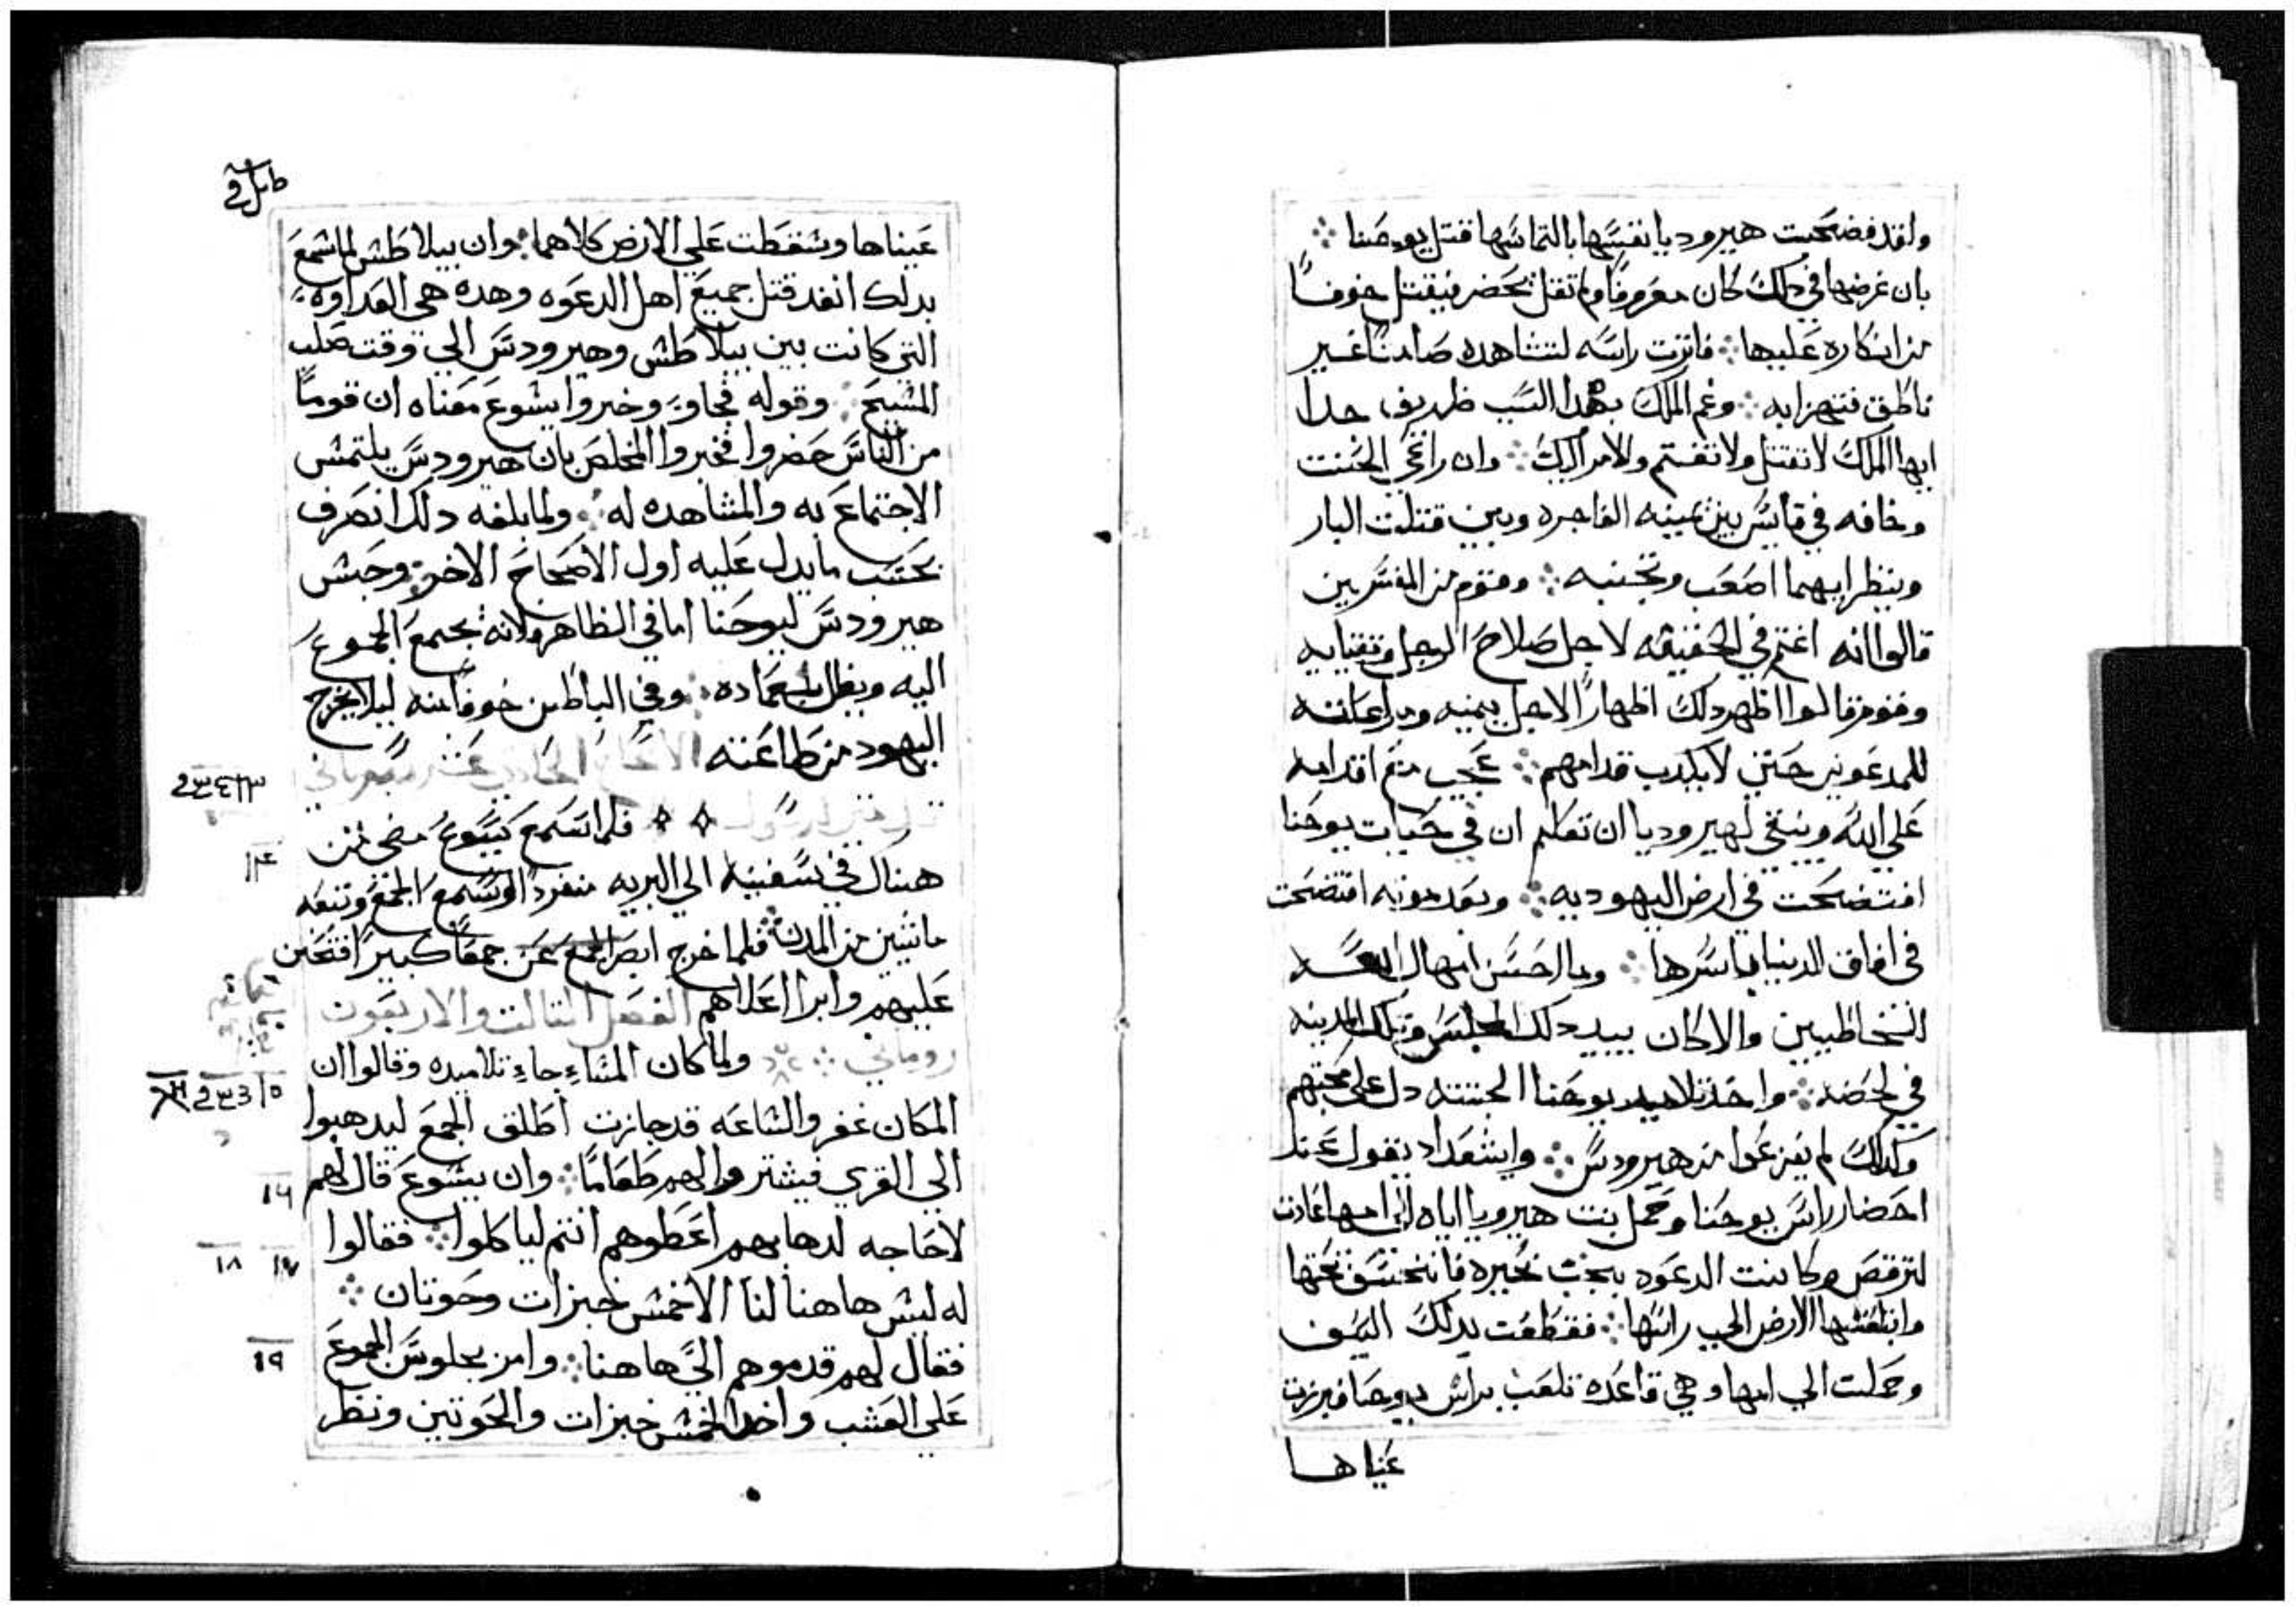 ولقد فضحت هيروديا نفسها بالتماسها قتل يوحنا
بان غرضها في دلك كان معروفا ولم تقل تحضر فيقتل خوفا
من انكاره عليها فاترت راسه لتشاهده صامتا غير
ناطق فتهزا به وغم الملك بهدا السبب ظريف جدا
ايها الملك لا تقتل ولا تغتم والامر اليك وان راعي الحنت
وخافه في قايس بين يمينه الفاجره وبين قتلت البار
وينظر ايهما اصعب وتجنبه وقوم من المفسرين
قالوا انه اغتم في الحقيقه لاجل صلاح الرجل وتقتابه
وقوم قالوا اظهر دلك اظهارا لاجل يمينه ومراعاته
للمدعوين حتي لا يكدب قدامهم عجب متم اقدامه
علي الله وينبغي لهيروديا ان تعلم ان في حيات يوحنا
افتضحت في ارض اليهوديه وبعد موته افتضحت
في افاق الدنيا باسرها وما احسن امهال الله
للخاطيين والا كان يبيد دلك المجلس وتلك المدينه
في لحضه واخد تلاميد يوحنا الجتته دل علي محبتهم
وكدلك لم يفزعوا من هيرودس وايشعداد يقول عند
احضار راس يوحنا وحمل بنت هيروديا اياه الي امها عادت
لترقص وكانت الدعوه بجنب بحيره فانخسف تحتها
وابتلعتها الارض الي راسها فقطعت بدلك السيف
وحملت الي امها وهي قاعده تلعب براس يوحنا فبرزت
عيناها
عيناها وسقطت علي الارض كلاهما وان بيلاطس لما سمع
بدلك انفد قتل جميع اهل الدعوه وهده هي العداوه
التي كانت بين بيلاطس وهيرودس الي وقت صلب
المسيح وقوله فجاو وخبروا يشوع معناه ان قوما
من الناس حضروا فخبروا المخلص بان هيرودس يلتمس
الاجتماع به والمشاهده له ولما بلغه دلك انصرف
بحسب ما يدل عليه اول الاصحاح الاخر وحبس
هيرودس ليوحنا اما في الظاهر ولانه يجمع الجموع
اليه ويظل بعماده وفي الباطن خوفا منه ليلا يخرج
اليهود من طاعته الاصحاح الحادي عشر
فلما سمع يسوع مضي من
هناك في سفينه الي البريه منفردا وسمع الجمع وتبعه
ماشين من المدن فلما خرج ابصر الجمع جمعا كبيرا فتحنن
عليهم وابرا اعلاهم الفصل التالت والاربعون
روماني ولما كان المساء جاء تلاميده وقالوا ان
المكان غفر والساعه قد جازت اطلق الجمع ليدهبوا
الي القري فيشتروا لهم طعاما وان يشوع قال لهم
لا حاجه لدهابهم اعطوهم انتم لياكلوا فقالوا
له ليس هاهنا لنا الا خمس خبزات وحوتان
فقال لهم قدموهم الي هاهنا وامر بجلوس الجموع
علي العشب واخد الخمس خبزات والحوتين ونظر
١٤
١٥
١٦
١٧ ١٨
١٩